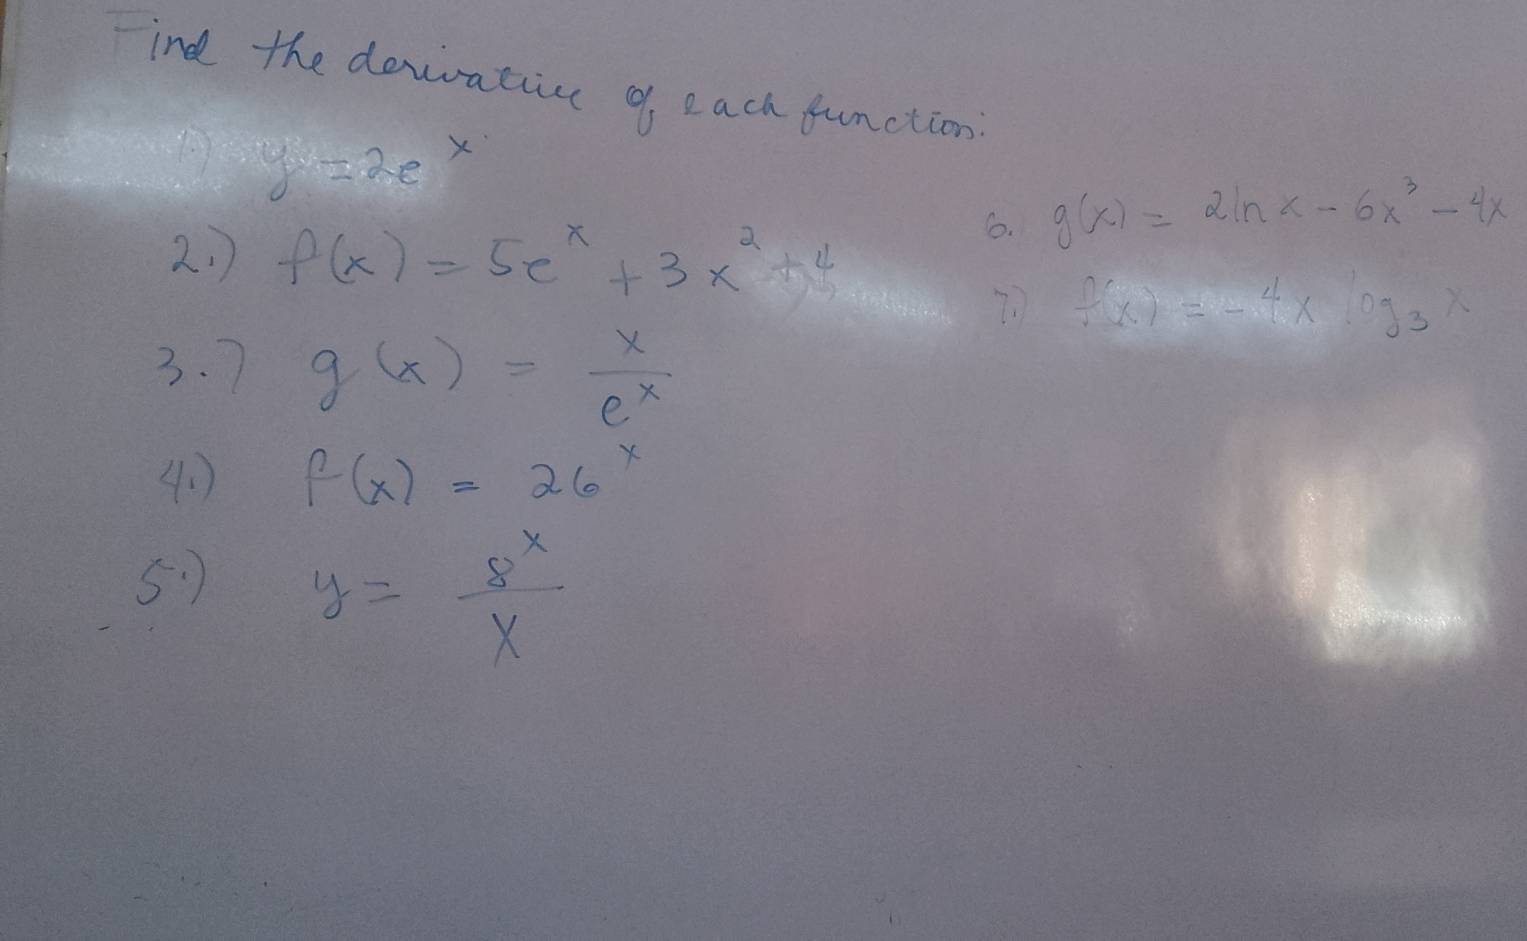 Find the derivative of each function:
1.) y = 2e^x
2.) f(x) = 5e^x + 3x^2 + 4
3.) g(x) = x/e^x
4.) f(x) = 26^x
5.) y = 8^x/x
6. g(x) = 2ln x - 6x^3 - 4x
7.) f(x) = -4x log_3 x